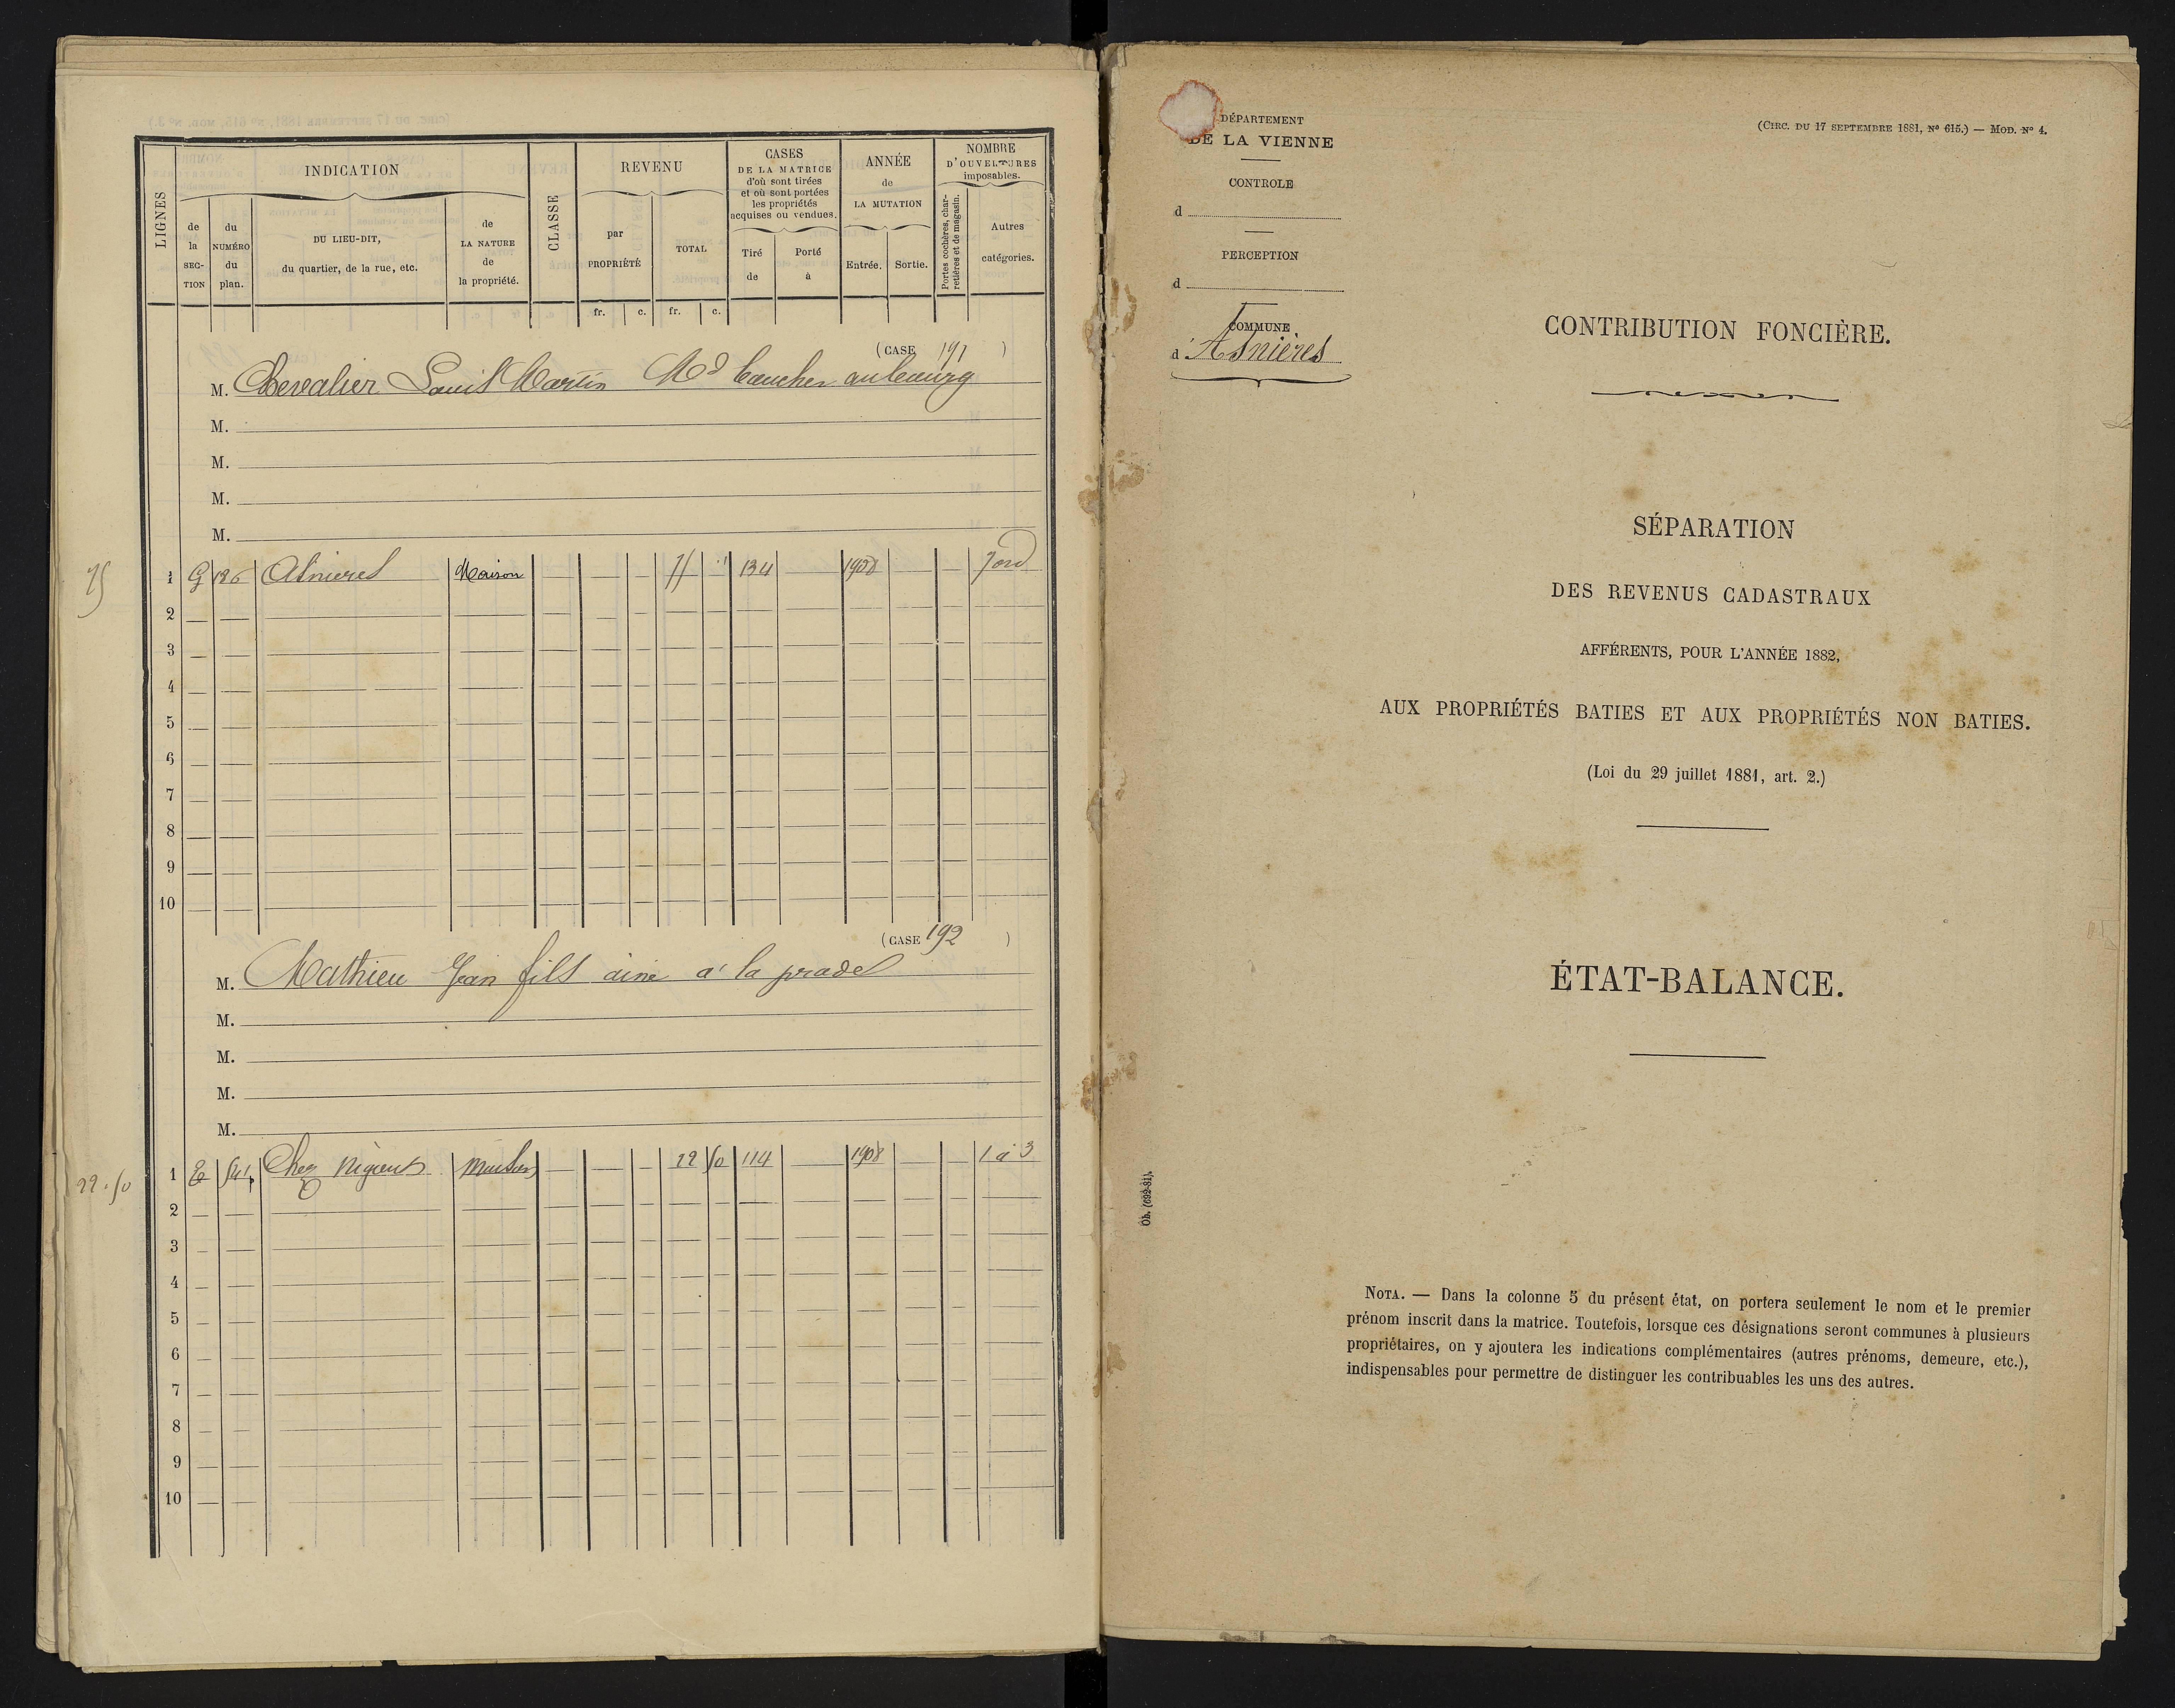 LIGNES
INDICATION
de la SECTION
du NUMÉRO du plan.
DU LIEU-DIT, du quartier, de la rue, etc.
de LA NATURE de la propriété.
CLASSE
REVENU
par PROPRIÉTÉ
TOTAL
CASES DE LA MATRICE d'où sont tirées et où sont portées les propriétés acquises ou vendues.
Tiré de
Porté à
ANNÉE de LA MUTATION
Entrée.
Sortie.
NOMBRE D'OUVERTURES imposables.
Portes cochères, charretières et de magasin.
Autres catégories.
fr. c. fr. c.
(CASE 191 )
M. Chevalier Louis Martin Md boucher au bourg
M.
M.
M.
M.
1 G 186 Asnieres Maison 134 1908
2
3
4
5
6
7
8
9
10
(CASE 192 )
M. Mathieu Jean fils ainé à la prade
M.
M.
M.
M.
22.50
1 E 541 Chez 22 50 114 1908 1 à 3
2
3
4
5
6
7
8
9
10
DÉPARTEMENT
DE LA VIENNE
CONTROLE
d
PERCEPTION
d
COMMUNE
d'Asnières
(CIRC. DU 17 SEPTEMBRE 1881, N° 615.) — MOD. N° 4.
CONTRIBUTION FONCIÈRE.
SÉPARATION
DES REVENUS CADASTRAUX
AFFÉRENTS, POUR L'ANNÉE 1882,
AUX PROPRIÉTÉS BATIES ET AUX PROPRIÉTÉS NON BATIES.
(Loi du 29 juillet 1881, art. 2.)
ÉTAT-BALANCE.
Oh. (692-81).
NOTA. — Dans la colonne 5 du présent état, on portera seulement le nom et le premier
prénom inscrit dans la matrice. Toutefois, lorsque ces désignations seront communes à plusieurs
propriétaires, on y ajoutera les indications complémentaires (autres prénoms, demeure, etc.),
indispensables pour permettre de distinguer les contribuables les uns des autres.